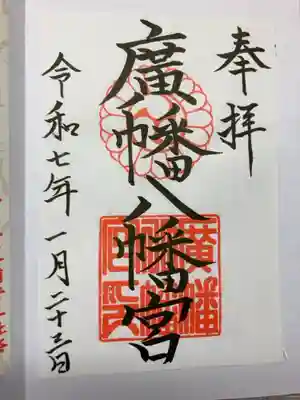 奉拝
廣幡八幡宮
令和七年一月二十三日